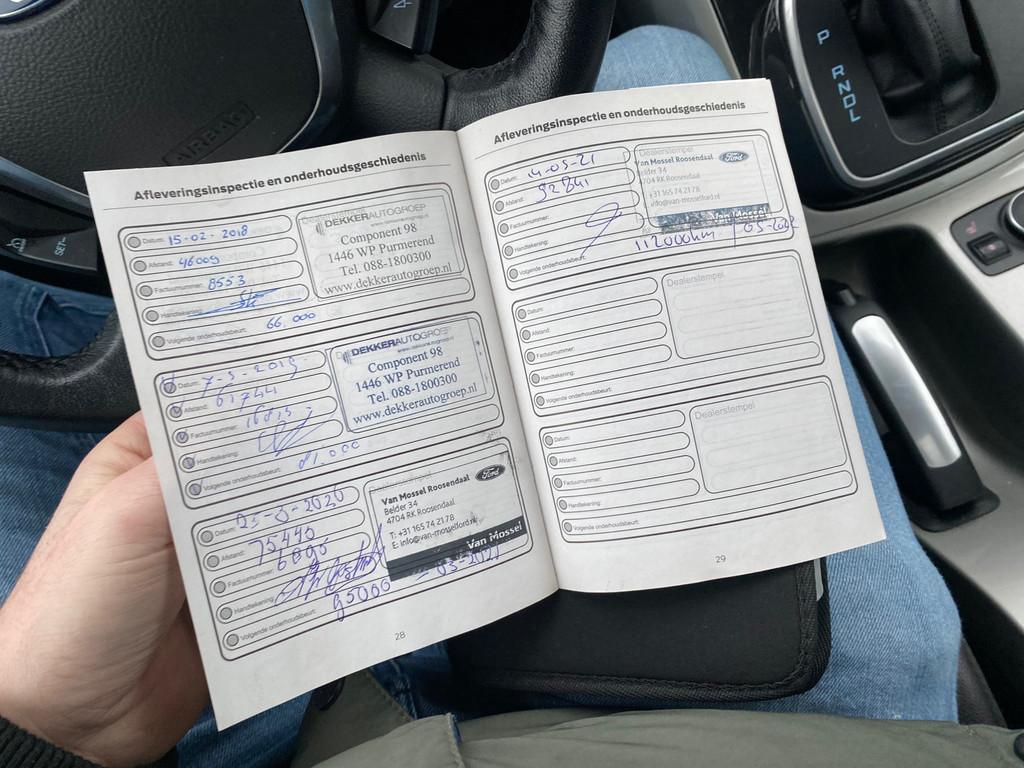 AIRBAG
SET-
P
R
N
D
L
Afleveringsinspectie en onderhoudsgeschiedenis
Datum: 15-02-2018
Afstand: 46009
Factuurnummer: 8553
Handtekening:
Volgende onderhoudsbeurt: 66.000
DEKKERAUTOGROEP
Component 98
1446 WP Purmerend
Tel. 088-1800300
www.dekkerautogroep.nl
Datum: 7-3-2019
Afstand: 61741
Factuurnummer:
Handtekening:
Volgende onderhoudsbeurt: 81.000
DEKKERAUTOGROEP
Component 98
1446 WP Purmerend
Tel. 088-1800300
www.dekkerautogroep.nl
Datum:
Afstand: 75440
Factuurnummer: 6895
Handtekening:
Volgende onderhoudsbeurt: 95000 - 03-2021
Van Mossel Roosendaal
Ford
Belder 34
4704 RK Roosendaal
T: +31 165 74 21 78
E: info@van-mosselford.nl
Van Mossel
28
Afleveringsinspectie en onderhoudsgeschiedenis
Datum: 14-05-21
Afstand: 92841
Factuurnummer:
Handtekening:
Volgende onderhoudsbeurt: 112000km
Dealerstempel
Van Mossel Roosendaal
Ford
Belder 34
4704 RK Roosendaal
+31 165 74 21 78
info@van-mosselford.nl
Van Mossel
Datum:
Afstand:
Factuurnummer:
Handtekening:
Volgende onderhoudsbeurt:
Dealerstempel
Datum:
Afstand:
Factuurnummer:
Handtekening:
Volgende onderhoudsbeurt:
Dealerstempel
29